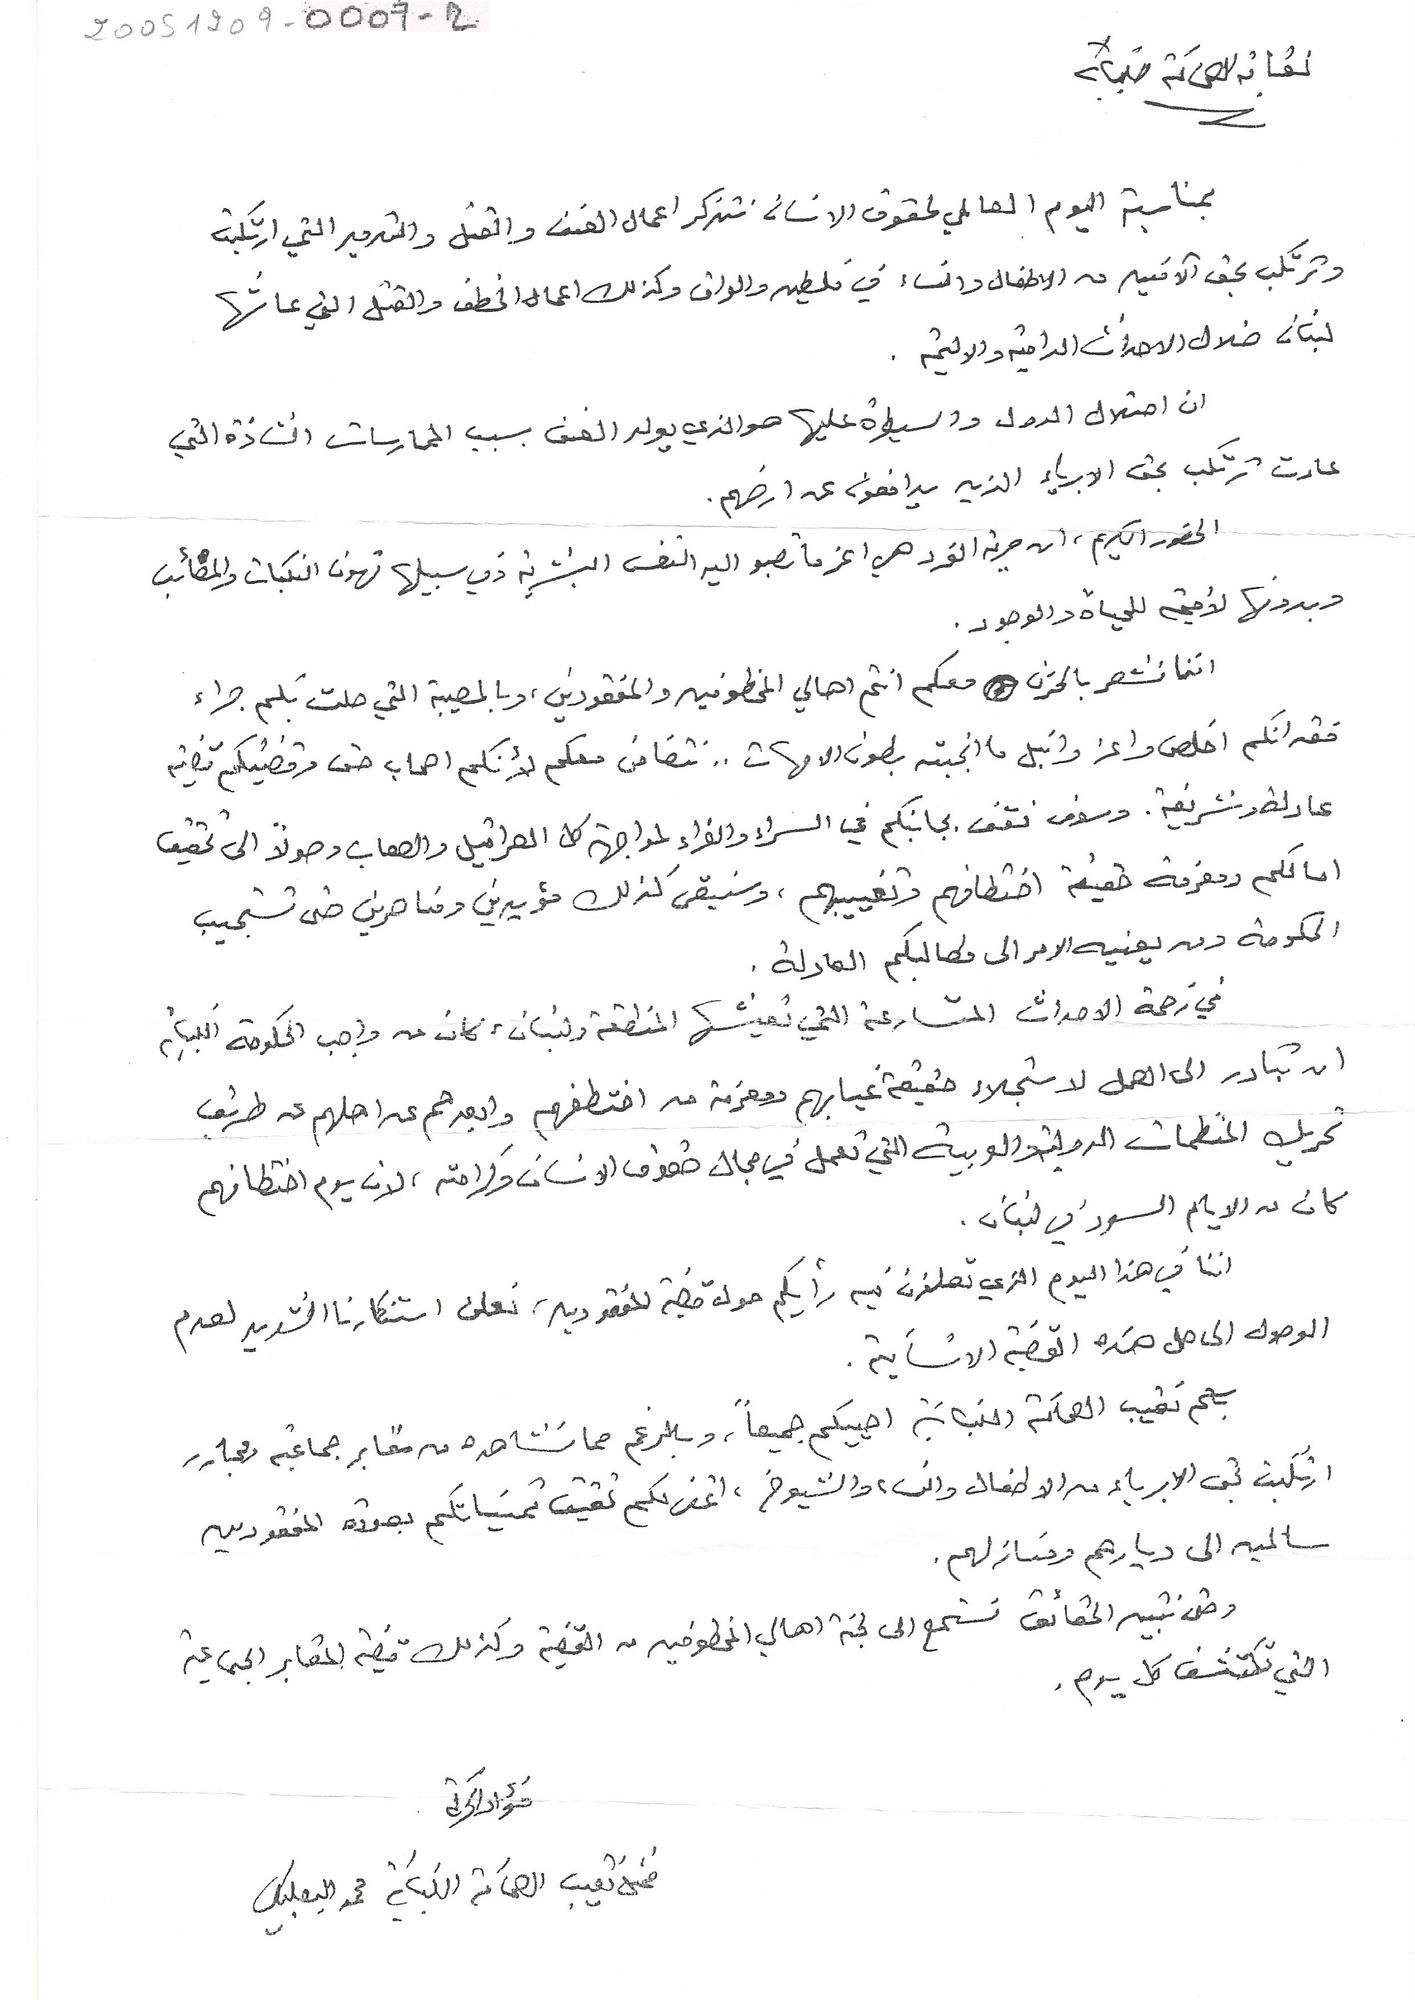 20051209-0007-2
نقابة الصحافة
بمناسبة اليوم العالمي لحقوق الانسان نتذكر اعمال العنف والقتل والتدمير التي ارتكبت
وترتكب بحق الآمنين من الاطفال والنساء في فلسطين والعراق وكذلك اعمال الخطف والقتل التي عاشها
لبنان خلال الاحداث الدامية والاليمة .
ان احتلال الدول والسيطرة عليها هو الذي يولد العنف بسبب الممارسات الشاذة التي
عادت ترتكب بحق الابرياء الذين يدافعون عن ارضهم .
الحضور الكريم ، ان حرية الفرد هي اعز ما تصبو اليه النفس البشرية ففي سبيلها تهون النكبات والمصائب
وبدونها لا قيمة للحياة والوجود .
اننا نشعر بالحزن معكم انتم اهالي المخطوفين والمفقودين ، وبالمصيبة التي حلت بكم جراء
فقدانكم اخلص واعز وانبل ما انجبته بطون الامهات .. نتضامن معكم لأنكم اصحاب حق وقضيتكم قضية
عادلة وشريفة . وسوف نقف بجانبكم في السراء والضراء لمواجهة كل العراقيل والصعاب وصولاً الى تحقيق
امالكم ومعرفة حقيقة اختطافهم وتغييبهم ، وسنبقى كذلك مؤيدين ومناصرين حتى تستجيب
الحكومة ومن يعنيه الامر الى مطالبكم العادلة .
في زحمة الاحداث المتسارعة التي تعيشها المنطقة ولبنان ، كان من واجب الحكومة اللبنانية
ان تبادر الى العمل لاستجلاء حقيقة غيابهم ومعرفة من اختطفهم وابعدهم عن اهلهم عن طريق
تحريك المنظمات الدولية والعربية التي تعمل في مجال حقوق الانسان وكرامته ، لان يوم اختطافهم
كان من الايام السود في لبنان .
اننا في هذا اليوم الذي تعلنون فيه رأيكم حول قضية المفقودين ، نعلن استنكارنا الشديد لعدم
الوصول الى حل هذه القضية الانسانية .
باسم نقيب الصحافة اللبنانية احييكم جميعاً ، وبالرغم مما نشاهده من مقابر جماعية ومجازر
ارتكبت بحق الابرياء من الاطفال والنساء والشيوخ ، اتمنى لكم تحقيق تمنياتكم بعودة المفقودين
سالمين الى ديارهم ومنازلهم .
وحتى تتبين الحقائق نستمع الى لجنة اهالي المخطوفين من القضية وكذلك قضية المقابر الجماعية
التي تكتشف كل يوم .
فؤاد
ممثل نقيب الصحافة اللبنانية محمد البعلبكي